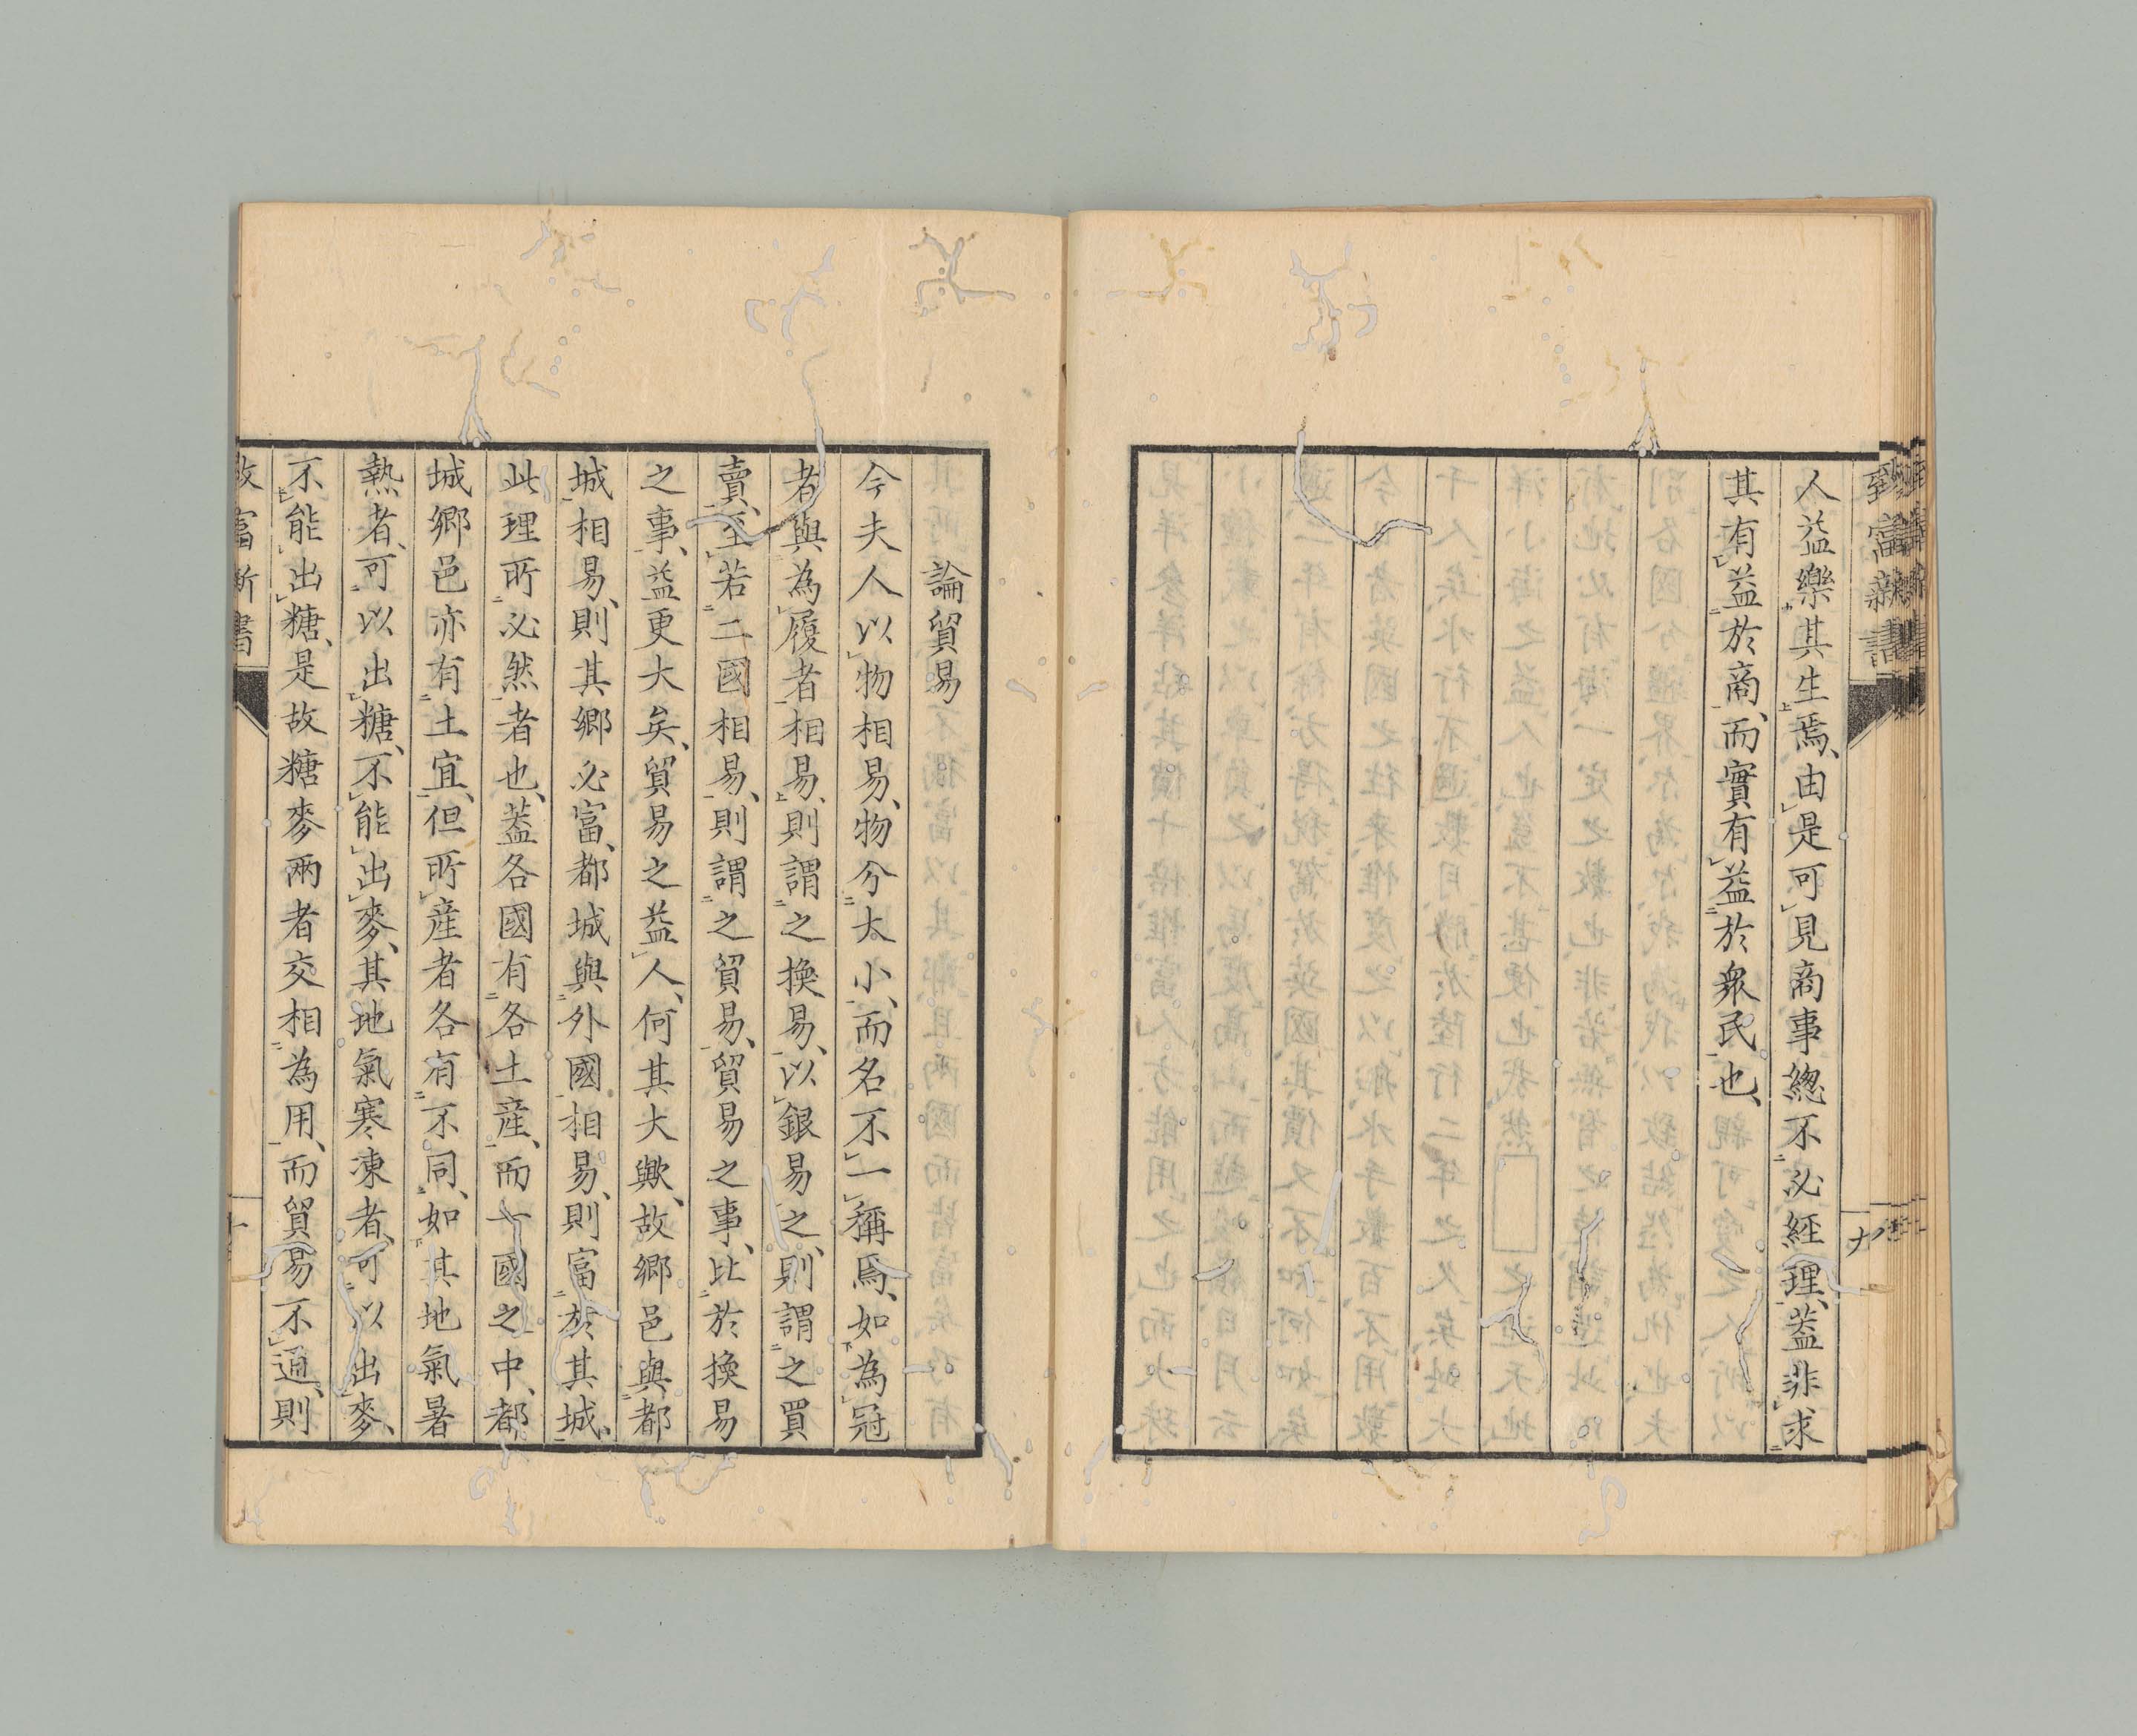 致富新書
九
人益樂其生焉、由是可見商事緫不必經理、葢非求
其有益於商、而實有益於衆民也、
論貿易
今夫人以物相易、物分大小、而名不一稱焉、如為冠
者與為履者相易、則謂之換易、以銀易之、則謂之買
賣、至若二國相易、則謂之貿易、貿易之事、比於換易
之事、益更大矣、貿易之益人、何其大歟、故鄉邑與都
城相易、則其鄉必富、都城與外國相易、則富於其城、
此理所必然者也、葢各國有各土産、而一國之中、都
城鄉邑亦有土宜、但所産者各有不同、如其地氣暑
熱者、可以出糖、不能出麥、其地氣寒凍者、可以出麥、
不能出糖、是故糖麥兩者交相為用、而貿易不通、則
致富新書
十